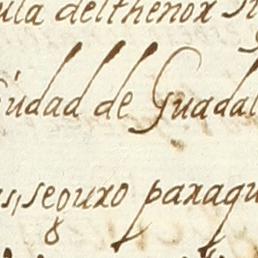 ula del thenor si
Ciudad de Guadal
s, seguro paraqu